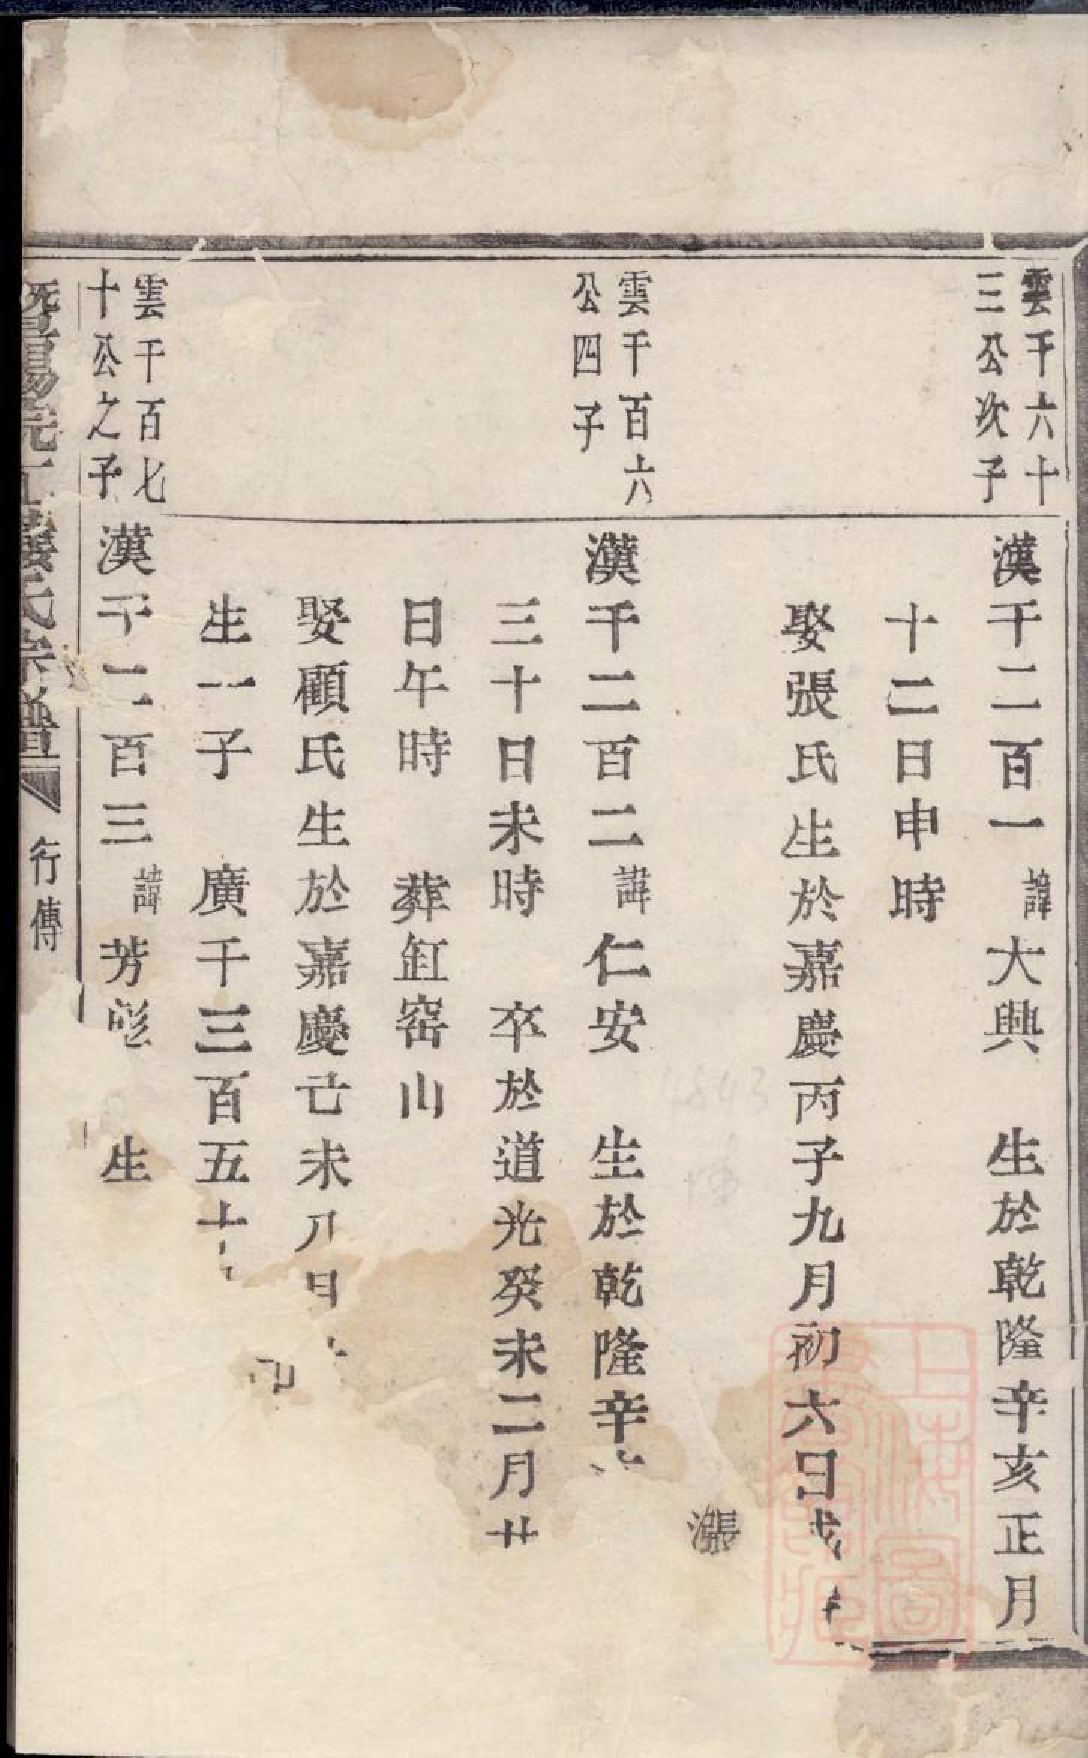 雲千六十
三公次子
漢千二百一 諱 大興 生於乾隆辛亥正月
十二日申時
娶張氏生於嘉慶丙子九月初六日
漲
雲千百六
公四子
漢千二百二 諱 仁安 生於乾隆辛
三十日未時 卒於道光癸未二月廿
日午時 葬缸窑山
娶顧氏生於嘉慶己未八月
生一子 廣千三百五十
雲千百七
十公之子
漢千二百三 諱 芳 生
暨陽 氏宗譜
行傳
上海圖